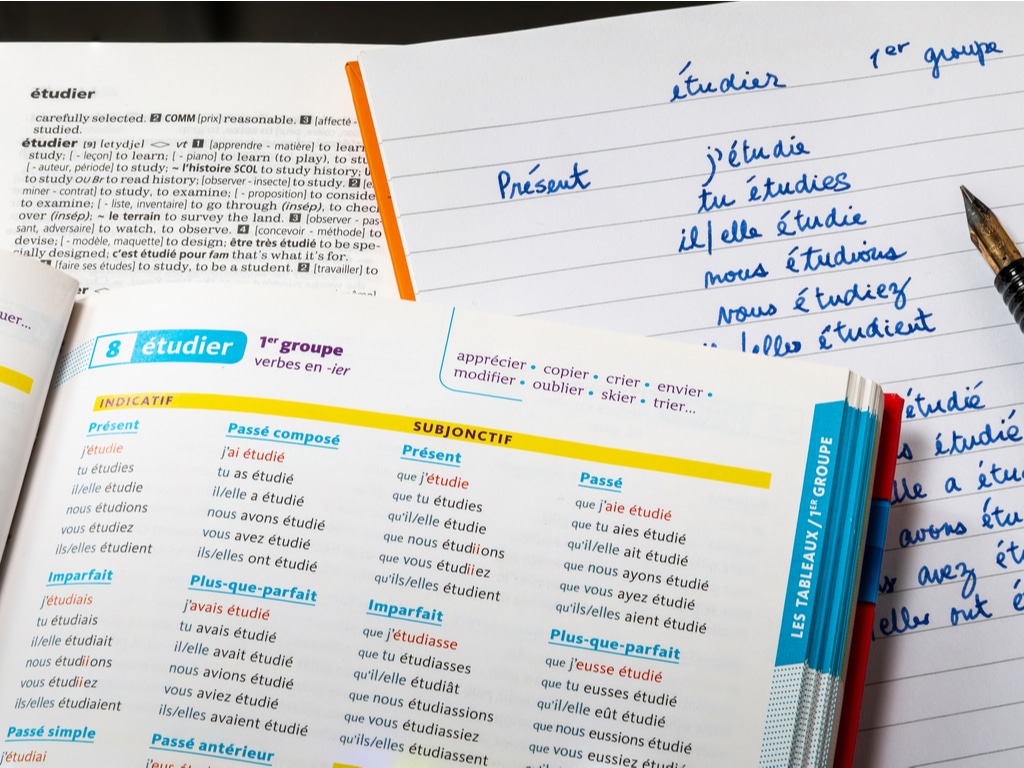 étudier
carefully selected. 2 COMM [prix] reasonable. 3 [affecté -
studied.
étudier [9] [etydje] <> vt 1 [apprendre - matière] to learn
study; [- leçon] to learn; [- piano] to learn (to play), to
[- auteur, période] to study; ~ l'histoire SCOL to study history;
to study OU Br to read history; [observer - insecte] to study. 2
miner - contrat] to study, to examine; [- proposition] to conside
to examine; [- liste, inventaire] to go through (insép), to chec
over (insép); ~ le terrain to survey the land. 3 [observer - pas-
sant, adversaire] to watch, to observe. 4 [concevoir - méthode] to
devise; [- modèle, maquette] to design; être très étudié to be spe-
cially designed; c'est étudié pour fam that's what it's for.
[faire ses études] to study, to be a student. 2 [travailler] to
étudier 1er groupe
Présent
j'étudie
tu étudies
il/elle étudie
nous étudions
vous étudiez
/elles étudient
étudié
étudié
a
avons
avez
elles ont
uer...
8 étudier
1er groupe
verbes en -ier
apprécier • copier • crier • envier •
modifier • oublier • skier • trier...
INDICATIF
Présent
j'étudie
tu étudies
il/elle étudie
nous étudions
vous étudiez
ils/elles étudient
Imparfait
j'étudiais
tu étudiais
il/elle étudiait
nous étudiions
vous étudiiez
ils/elles étudiaient
Passé simple
j'étudiai
Passé composé
j'ai étudié
tu as étudié
il/elle a étudié
nous avons étudié
vous avez étudié
ils/elles ont étudié
Plus-que-parfait
j'avais étudié
tu avais étudié
il/elle avait étudié
nous avions étudié
vous aviez étudié
ils/elles avaient étudié
Passé antérieur
SUBJONCTIF
Présent
que j'étudie
que tu étudies
qu'il/elle étudie
que nous étudiions
que vous étudiiez
qu'ils/elles étudient
Imparfait
que j'étudiasse
que tu étudiasses
qu'il/elle étudiât
que nous étudiassions
que vous étudiassiez
qu'ils/elles étudiassent
Passé
que j'aie étudié
que tu aies étudié
qu'il/elle ait étudié
que nous ayons étudié
que vous ayez étudié
qu'ils/elles aient étudié
Plus-que-parfait
que j'eusse étudié
que tu eusses étudié
qu'il/elle eût étudié
que nous eussions étudié
que vous eussiez étudié
LES TABLEAUX / 1ER GROUPE